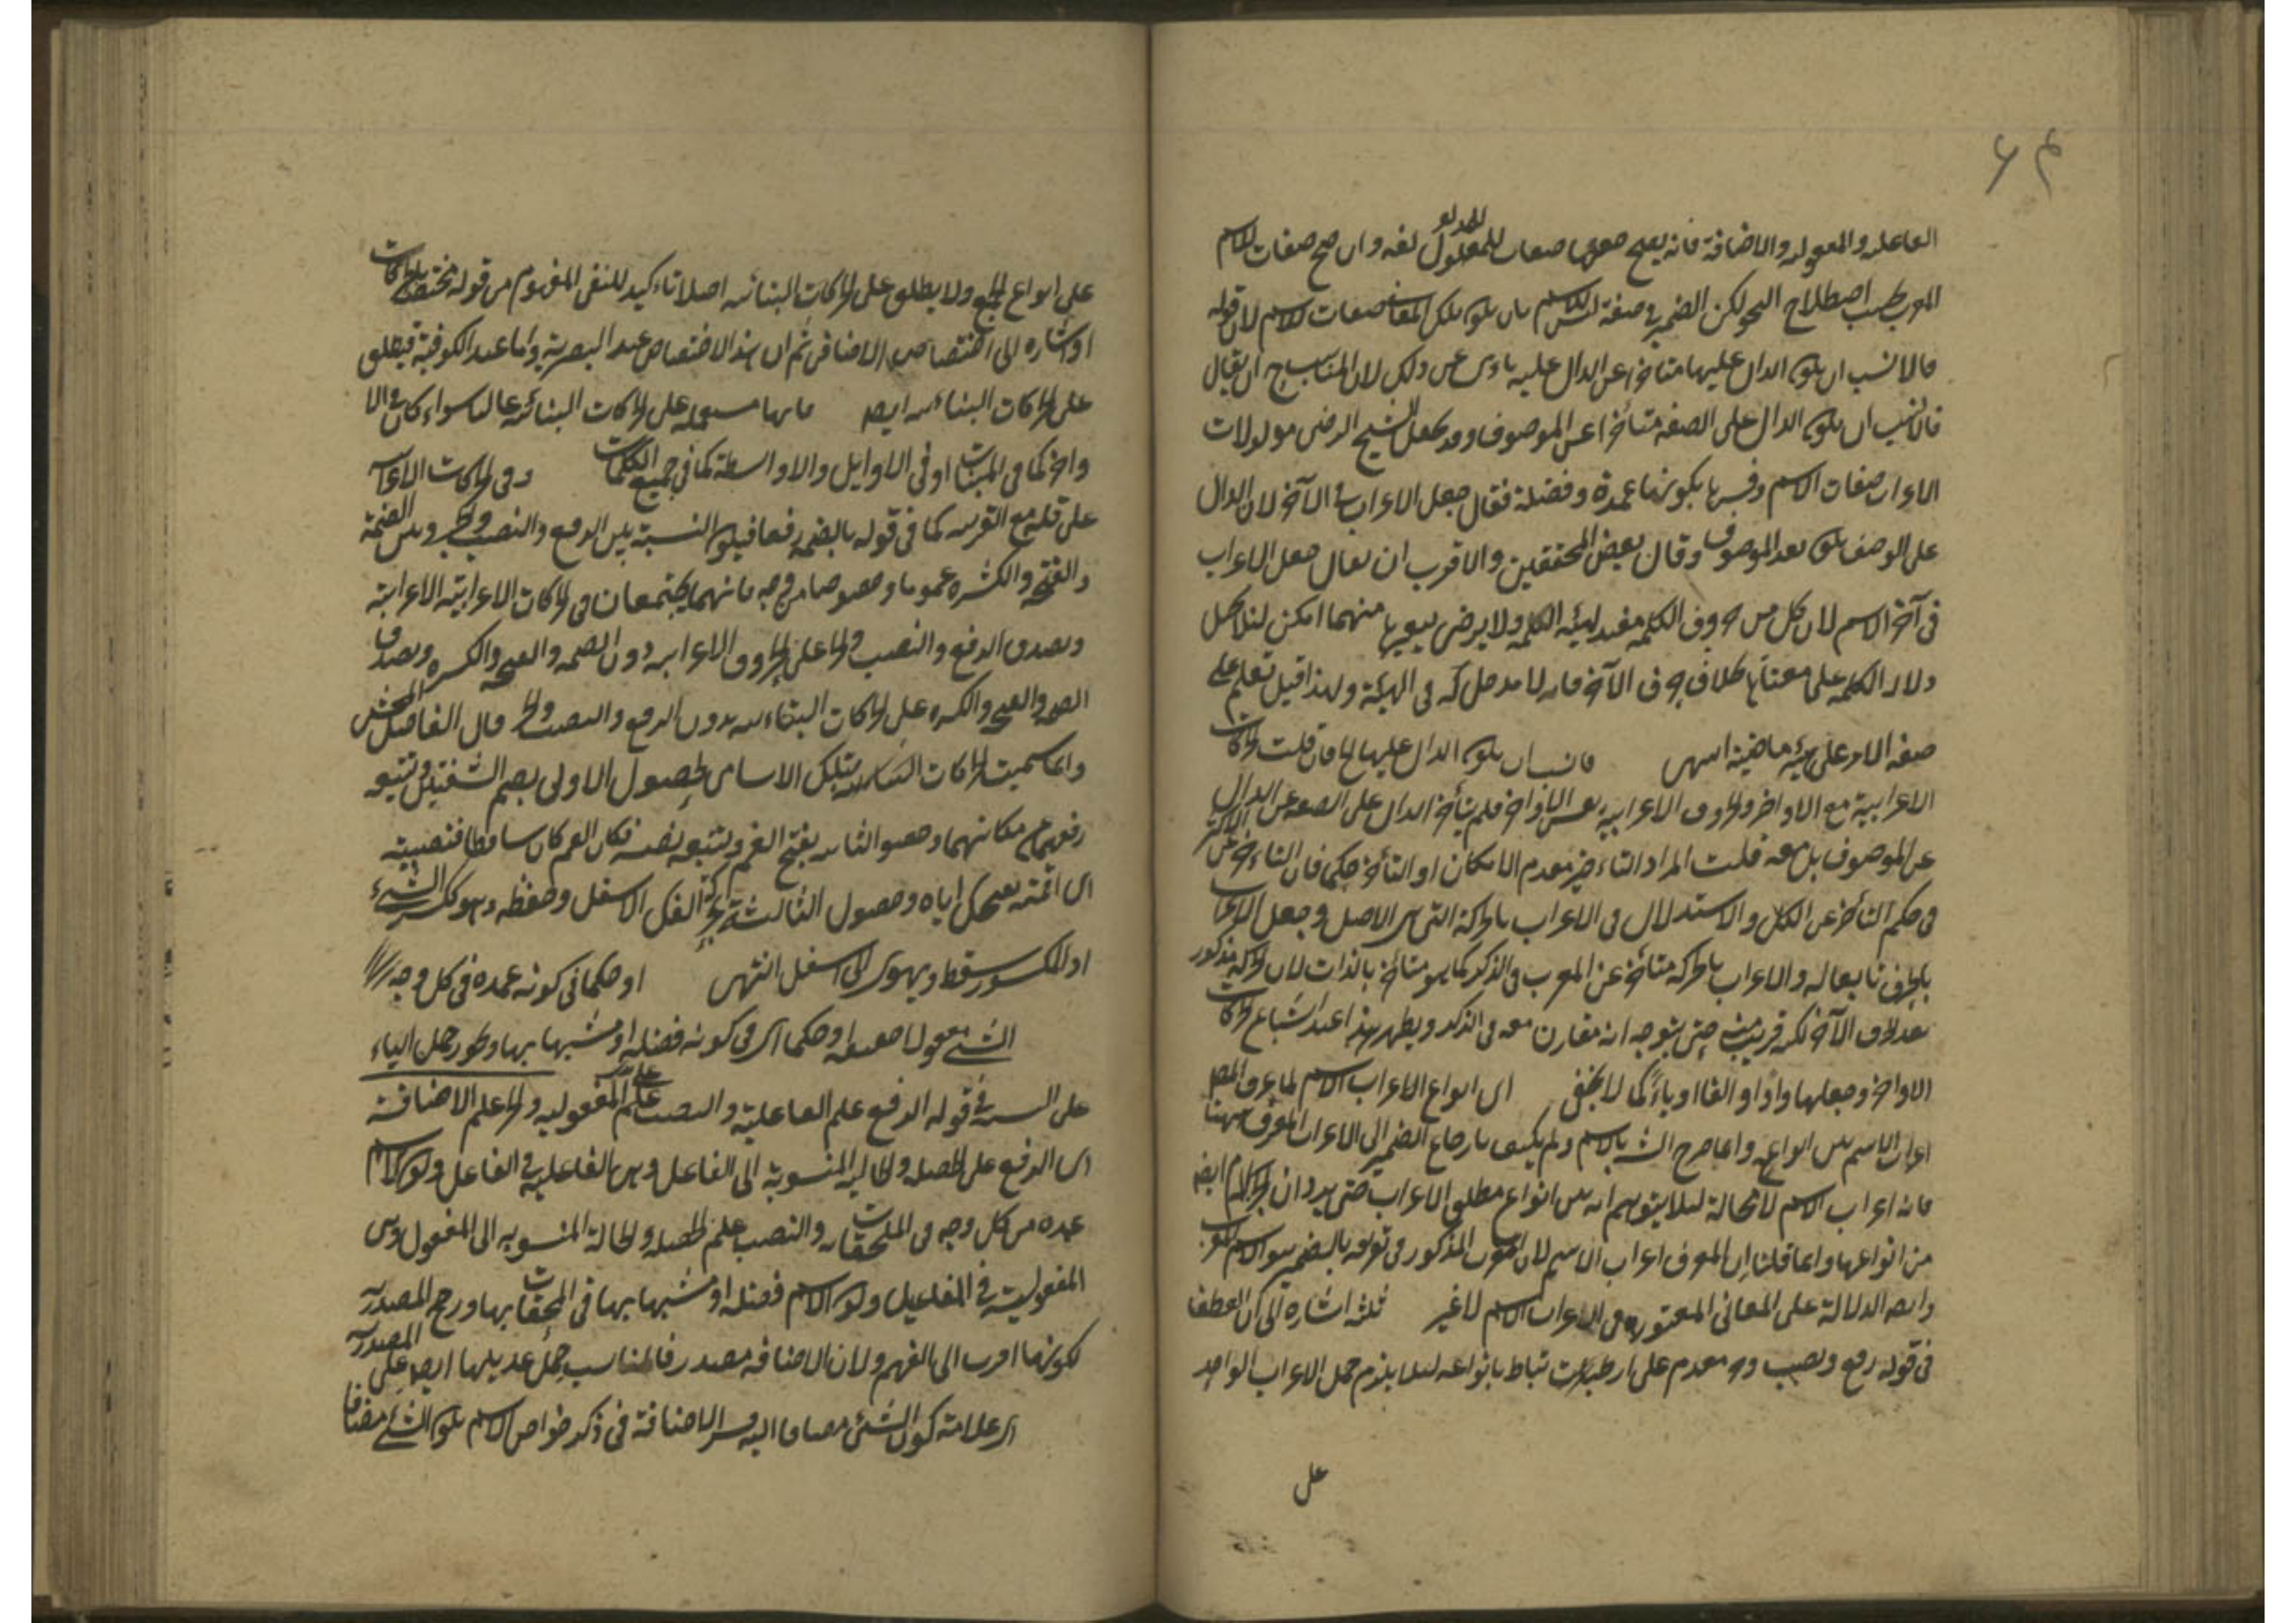 ۶۴
العاعله والمعوليه والاضافة فانه يصح جعلها صفات للمدلول لغه وان صح صفات الاسم
المعرب بحسب اصطلاح النحو لكن الضمير في صفة الاسم بان يكون تلك المعاني صفات الاسم لان قوله
فالانسب ان يكون الدال عليها متاخرا عن الدال عليه ان يقال
فالانسب ان يكون الدال على الصفة متأخرا عن الموصوف وقد جعل الشيخ الرضى مدلولات
الاعراب صفات الاسم وفسرها بكونها عمدة وفضلة فقال جعل الاعراب في الآخر لان الدال
على الوصف يكون بعد الموصوف وقال بعض المحققين والاقرب ان يقال جعل الاعراب
في آخر الاسم لان كل من حروف الكلمة مفيد لهيئة الكلمة ولا يرضى بتغييرها منهما امكن لئلا يخل
دلالة الكلمة على معناها بخلاف حرف الآخر فانه لا مدخل له في الهيئة ولهذا قيل تعلم على
صيغة الامر على هيئة ماضيه انتهى فانسب ان يكون الدال عليها الخ فان قلت الحركات
الاعرابية مع الاواخر والحروف الاعرابية نفس الاواخر فلم يتأخر الدال على الصفة عن الدال
عن الموصوف بل معه قلت المراد التاخر بقدر الامكان او التأخر حكما فان التاخر عن الاكثر
في حكم التأخر عن الكل والاستدلال في الاعراب بالحركة التي هي الاصل وجعل الاعراب
بالحرف تابعا له والاعراب بالحركة متأخر عن المعرب في الذكر كما هو متأخر بالذات لان الحركة مذكور
بعد حرف الآخر لكنه قريب منه حتى يتوجه انه مقارن معه في الذكر ويظهر هذا عند اشباع حركات
الاواخر وجعلها واوا او الفا او ياء كما لا يخفى اى انواع الاعراب الاسم لما عرف المص
اعراب الاسم بين انواعه وانما صرح الش بالاسم ولم يكتف بارجاع الضمير الى الاعراب المعرف ههنا
فانه اعراب الاسم لا محالة لئلا يتوهم انه بين انواع مطلق الاعراب حتى يرد ان الجزم ايضا
من انواعها وانما قلنا ان المعرف اعراب الاسم لان المعرب المذكور في تعريفه بالضمير هو الاسم المعرب
وايضا الدلالة على المعاني المعتورة في الاعراب الاسم لا غير ثلثة اشارة الى ان العطف
في قوله رفع ونصب وجر مقدم على ارتباط بانواعه لئلا يلزم حمل الاعراب الواحد
على
على انواع الجمع ولا يطلق على الحركات البنائية اصلا تاءكيد للنفى المفهوم من قوله مختص بالحركات
او اشاره الى اختصاص الاضافى ثم ان هذا الاختصاص عند البصرية واما عند الكوفية فيطلق
على الحركات البنائية ايضا فانها مستعملة على الحركات البنائية غالبا سواء كان في الا
واخر كما في المبنيات او في الاوايل والاواسط كما في جميع الكلمات وفى الحركات الاعرابية
على قلة مع القرينه كما في قوله بالضمة رفعا فيكون النسبة بين الرفع والنصب والجر وبين الضمة
والفتحة والكسره عموما وخصوصا من وجه فانهما يجتمعان في الحركات الاعرابية الاعرابية
ويصدق الرفع والنصب والجر على الحروف الاعرابيه دون الضمه والفتحه والكسره ويصدق
الضمه والفتحه والكسره على الحركات البنائيه بدون الرفع والنصب والجر قال الفاضل المحشى
وانما سميت الحركات الثلث بتلك الاسامى لحصول الاولى بضم الشفتين ويتبعه
رفعهما عن مكانهما وحصول الثانيه بفتح الفم ويتبعه نصبه فكان الفم كان ساقطا فنصبته
اى اقمته بفتحك اياه وحصول الثالثة بجر الفك الاسفل وخفضه وهو ككسر الشىء
اذ المكسور يسقط ويهوى الى اسفل انتهى او حكما في كونه عمده في كل وجه
الشىء معمولا حقيقة او حكما اى في كونه فضلة او مشبها بها وطور حمل الياء
على النسبه في قوله الرفع علم الفاعلية والنصب علم المفعوليه والجر علم الاضافة
اى الرفع علم الخصلة والحالة المنسوبة الى الفاعل وهى الفاعلية في الفاعل وكون الاسم
عمده من كل وجه في الملحقات والنصب علم الخصلة والحالة المنسوبه الى المفعول وهى
المفعولية في المفاعيل وكون الاسم فضلة او مشبها بها في الملحقات بها ورجح المصدرية
لكونها اقرب الى الفهم ولان الاضافة مصدر فالمناسب حمل عديلها ايضا على المصدرية
اى علامة كون الشىء مضافا اليه فسر الاضافة في ذكر خواص الاسم بكون الشىء مضافا